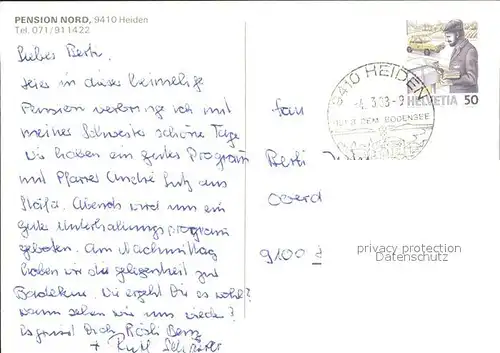 PENSION NORD, 9410 Heiden
Tel. 071/911422
Liebes Berti
hier in dieser heimelige
Pension verbringe ich mit
meiner Schwester schöne Tage
Wir haben ein gutes Program
mit Pfarrer André Lutz aus
Stäfa. Abends wird uns ein
gute Unterhaltungsprogram
geboten. Am Nachmittag
haben wir die gelegenheit zut
Badekur. Wie ergeht Dir es wohl?
wann sehen wir uns wieder?
Es grüsst Dich Rösli
+ Ruth
9410 HEIDEN
-4.3.93-9
ÜBER DEM BODENSEE
HELVETIA 50
Frau
Berti
9100
privacy protection
Datenschutz